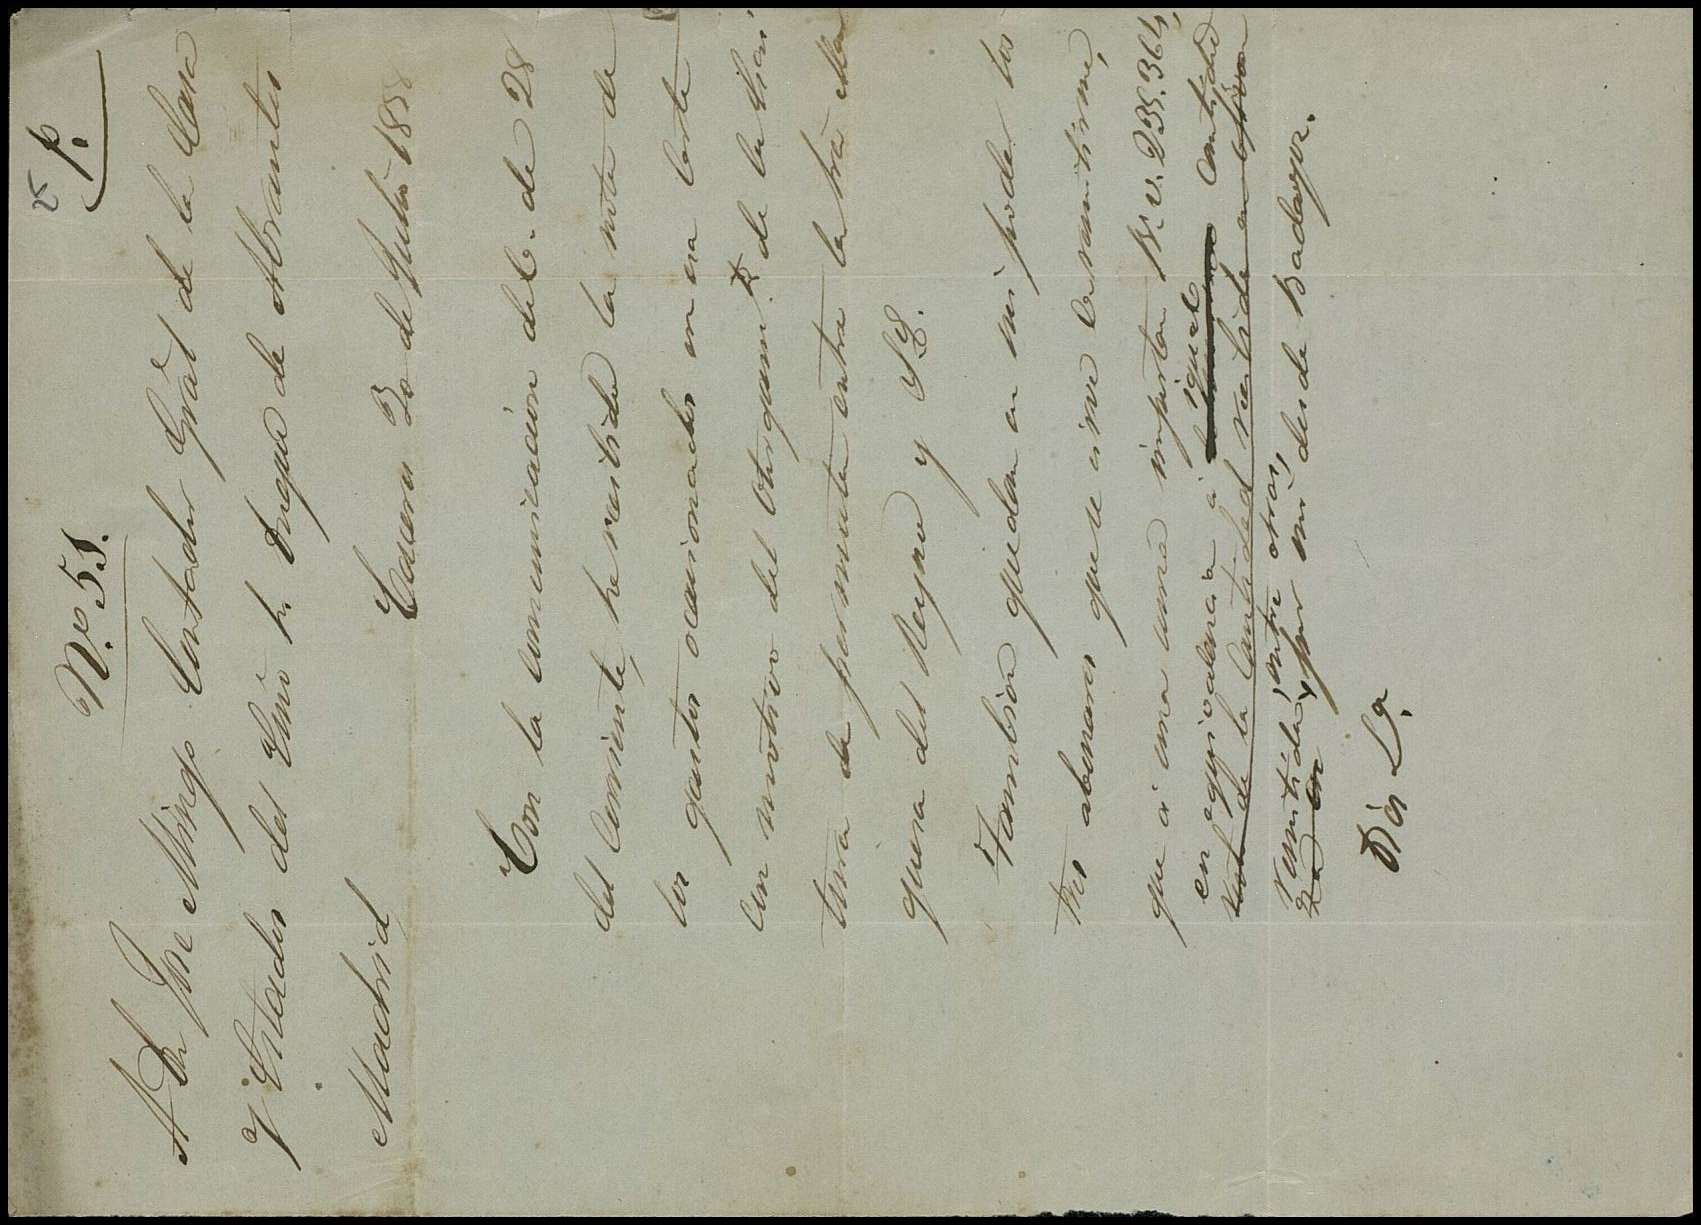 N.º 55.
p.
A Dn José Mingo Contador Gral de la Casa
y Estados del Exmo Sr. Duque de Abrantes
Madrid
Cáceres 30 de Julio 1858
Con la comunicacion del C. de 28
del Corriente, he recibido la nota de
los gastos ocasionados en esa Corte
con motivo del otorgam.to de la Escri
tura de permuta entre la Sra Mar
quesa del Reyno y S.E.
Tambien quedan en mi poder los
tres abonares que se sirve Ce remitirme,
que á una suma importan R.s v. 235.364,
en equivalencia á igual cantidad
remitida, entre otras,
por mi desde Badajoz.
Dios Ga.